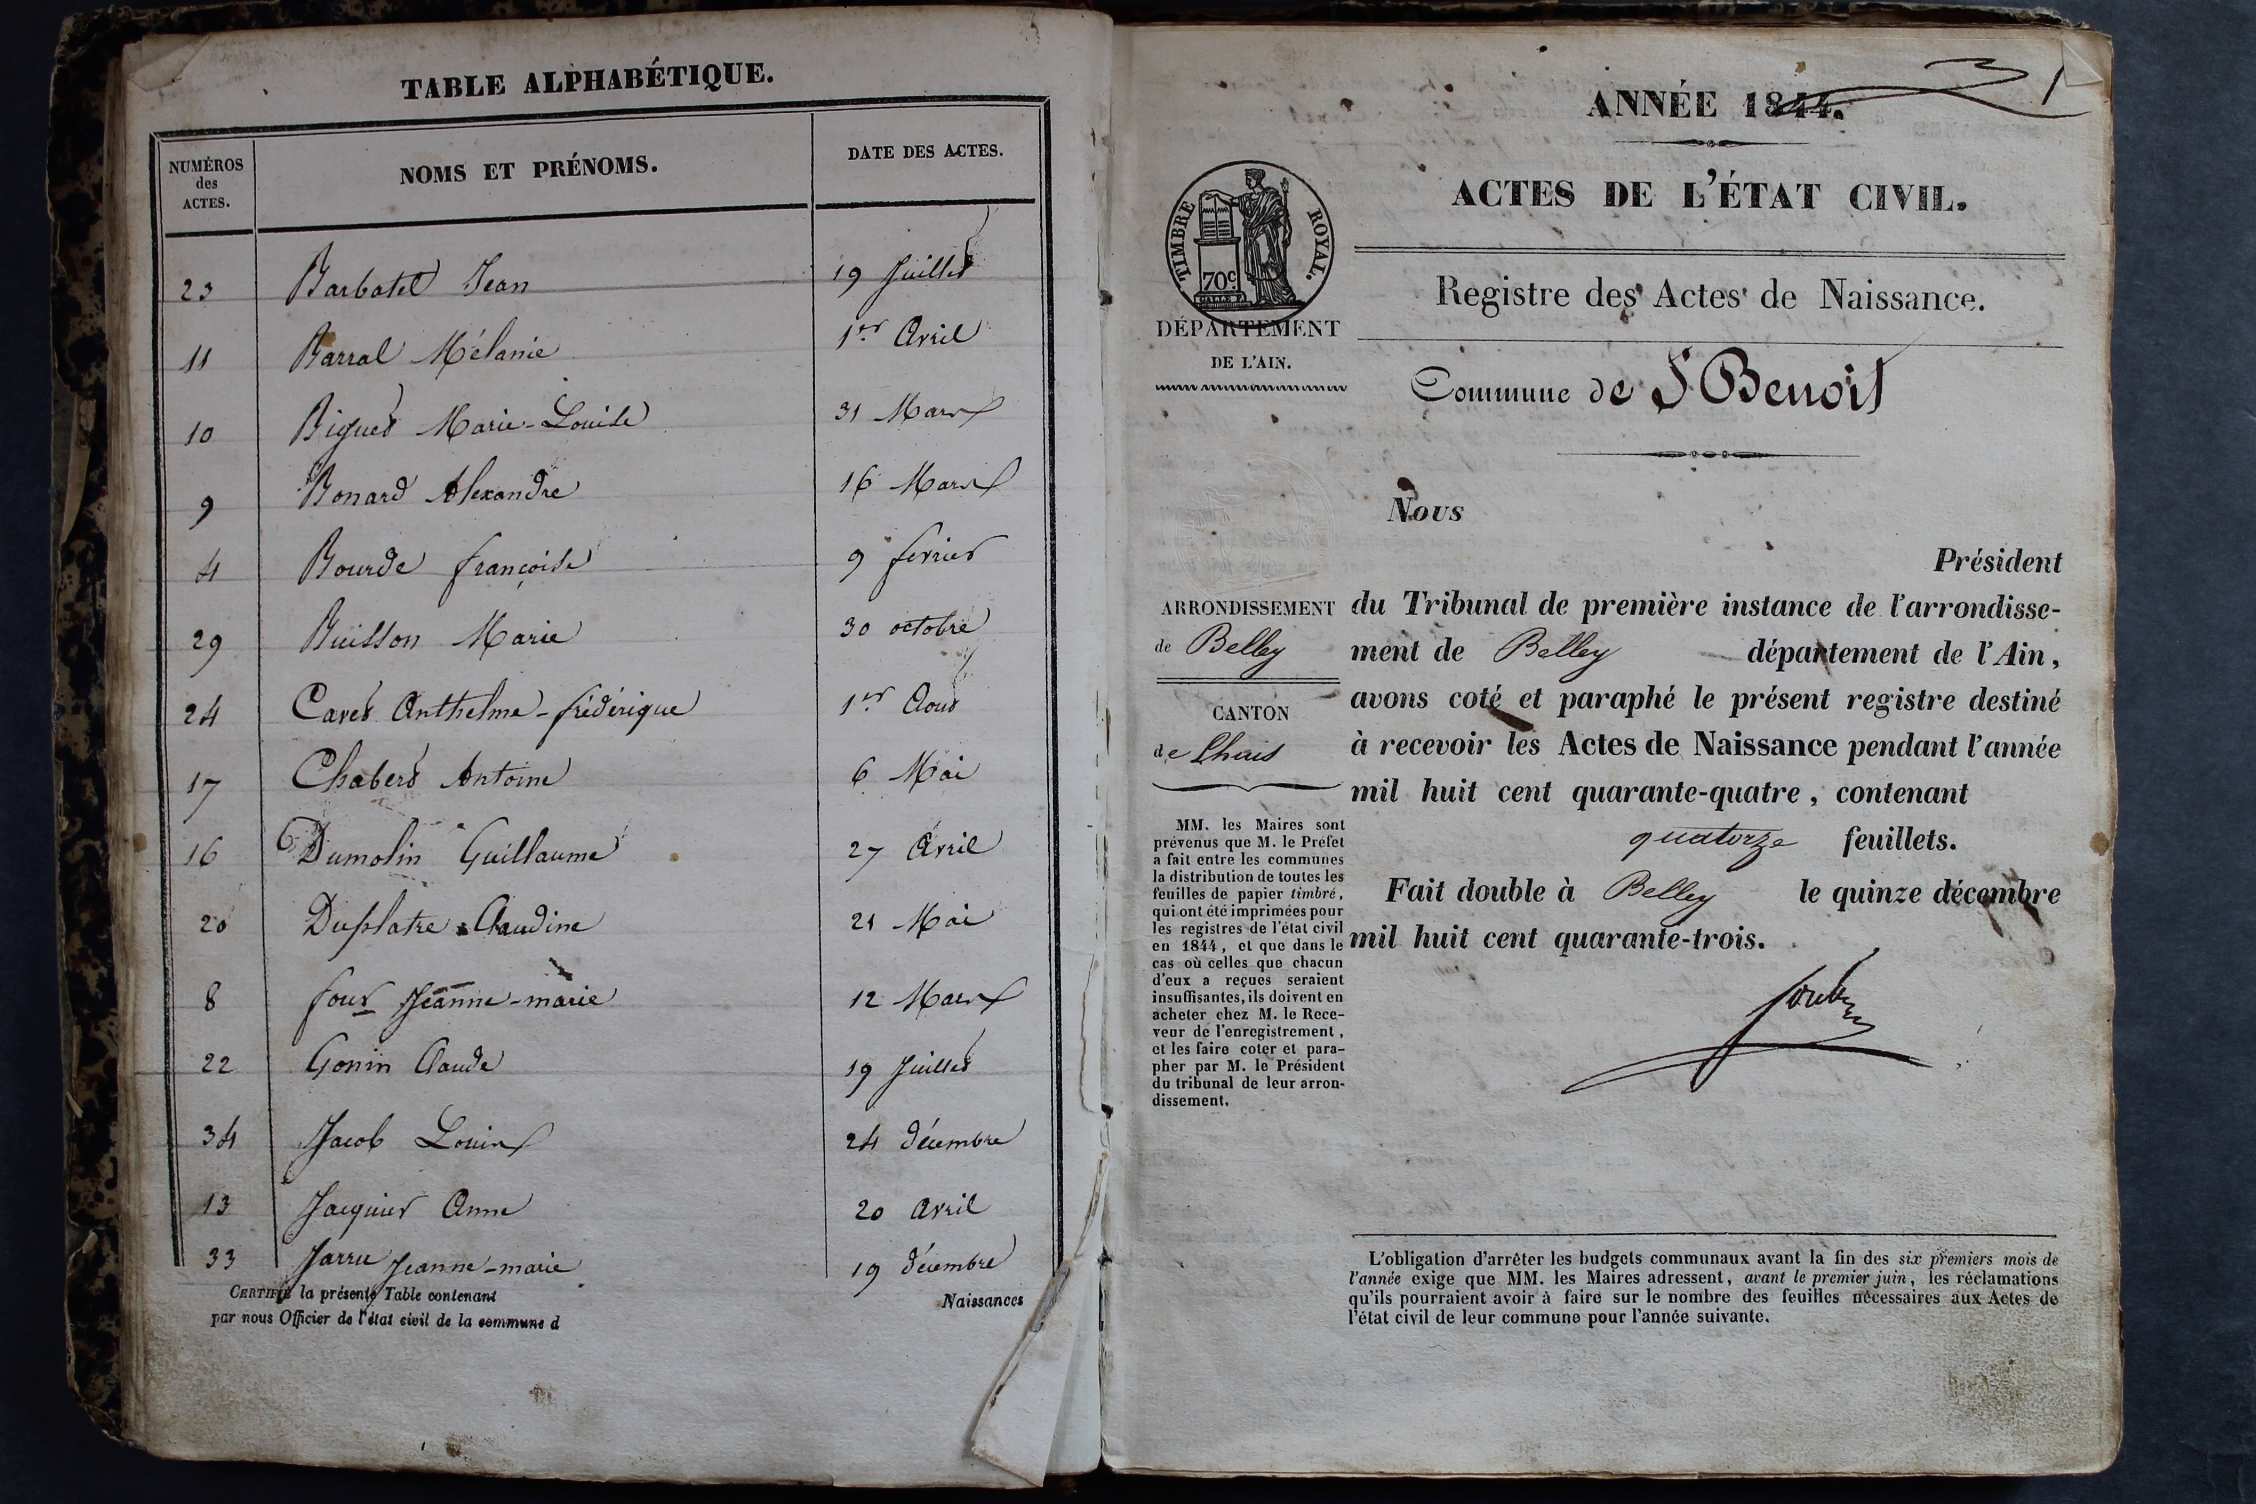 TABLE ALPHABÉTIQUE.
NUMÉROS
des
ACTES.
NOMS ET PRÉNOMS.
DATE DES ACTES.
23 Barbatel Jean 19 Juillet
11 Barral Mélanie 1er Avril
10 Biguet Marie-Louise 31 Mars
9 Bonard Alexandre 16 Mars
4 Bourde françoise 9 février
29 Buisson Marie 30 octobre
24 Cavet Anthelme-frédérique 1er Aout
17 Chabert Antoine 6 Mai
16 Dumolin Guillaume 27 Avril
20 Duplatre Claudine 21 Mai
8 four Jeanne-marie 12 Mars
22 Gonin Claude 19 Juillet
34 Jacob Louis 24 décembre
13 Jacquier Anne 20 avril
33 Jarru Jeanne-marie 19 décembre
CERTIFIÉ la présente Table contenant Naissances
par nous Officier de l'état civil de la commune d
ANNÉE 1844.
1
ACTES DE L'ÉTAT CIVIL.
TIMBRE ROYAL.
70c
DÉPARTEMENT
DE L'AIN.
Registre des Actes de Naissance.
Commune de St Benoit
Nous
Président
ARRONDISSEMENT
de Belley
CANTON
de Lhuis
du Tribunal de première instance de l'arrondisse-
ment de Belley département de l'Ain,
avons coté et paraphé le présent registre destiné
à recevoir les Actes de Naissance pendant l'année
mil huit cent quarante-quatre, contenant
quatorze feuillets.
Fait double à Belley le quinze décembre
mil huit cent quarante-trois.
MM. les Maires sont
prévenus que M. le Préfet
a fait entre les communes
la distribution de toutes les
feuilles de papier timbré,
qui ont été imprimées pour
les registres de l'état civil
en 1844, et que dans le
cas où celles que chacun
d'eux a reçues seraient
insuffisantes, ils doivent en
acheter chez M. le Rece-
veur de l'enregistrement,
et les faire coter et para-
pher par M. le Président
du tribunal de leur arron-
dissement.
L'obligation d'arrêter les budgets communaux avant la fin des six premiers mois de
l'année exige que MM. les Maires adressent, avant le premier juin, les réclamations
qu'ils pourraient avoir à faire sur le nombre des feuilles nécessaires aux Actes de
l'état civil de leur commune pour l'année suivante.